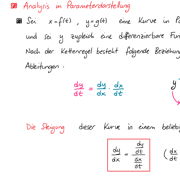 Analysis in Parameterdarstellung
Sei x = f(t), y = g(t) eine Kurve in
und sei y zugleich eine differenzierbare
Nach der Kettenregel besteht folgende
Ableitungen:
dy/dt = dy/dx · dx/dt
y
Die Steigung dieser Kurve in einem
dy/dx = (dy/dt)/(dx/dt) (dx/dt